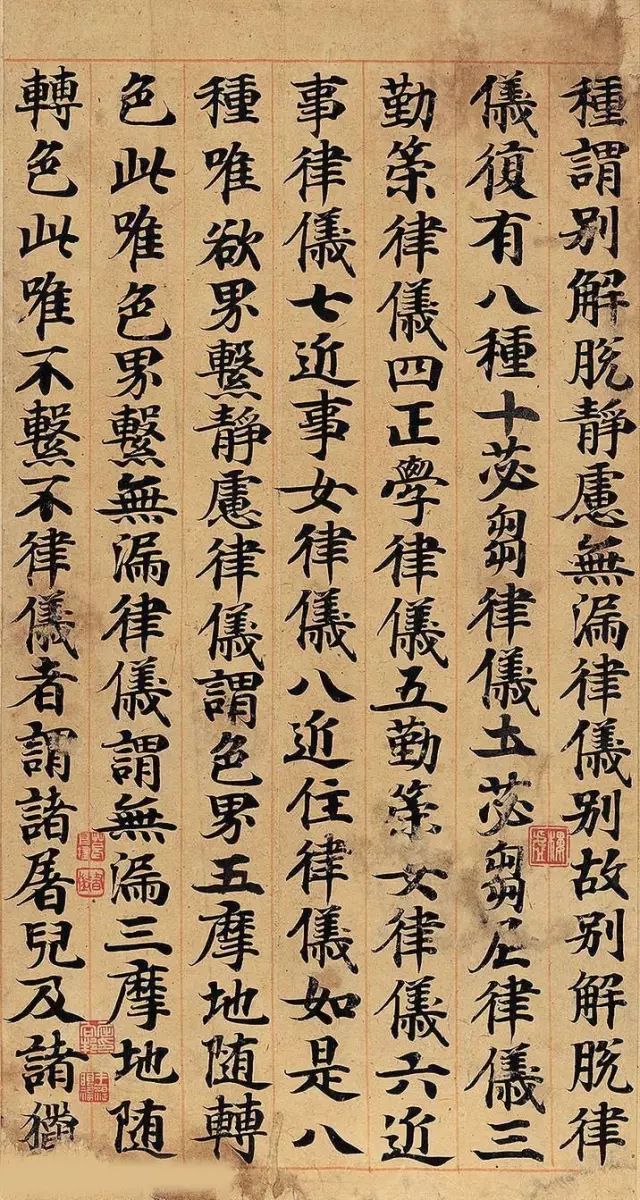 種謂别解脱静慮無漏律儀别故别解脱律
儀復有八種十苾芻律儀土苾芻尼律儀三
勤策律儀四正學律儀五勤策女律儀六近
事律儀七近事女律儀八近住律儀如是八
種唯欲界繫静慮律儀謂色界五摩地随轉
色此唯色界繫無漏律儀謂無漏三摩地随
轉色此唯不繫不律儀者謂諸屠兒及諸獵